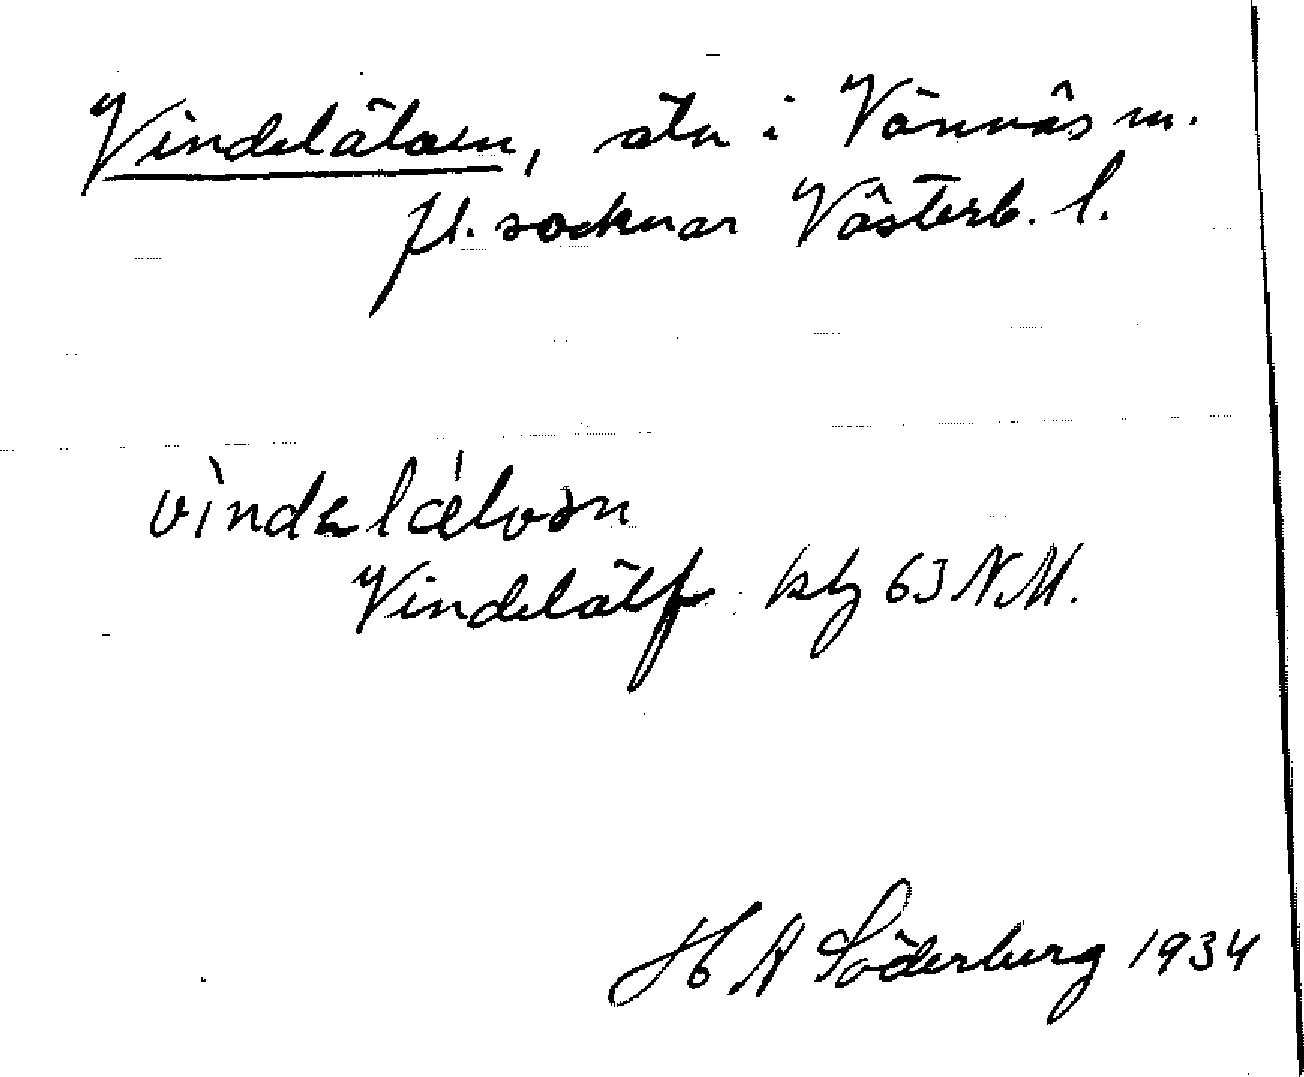 Vindelälven, älv i Vännäs m.
fl. socknar Västerb. l.
vìndəlǽlvən
Vindelälf kbl 63 N.M.
H A Söderberg 1934